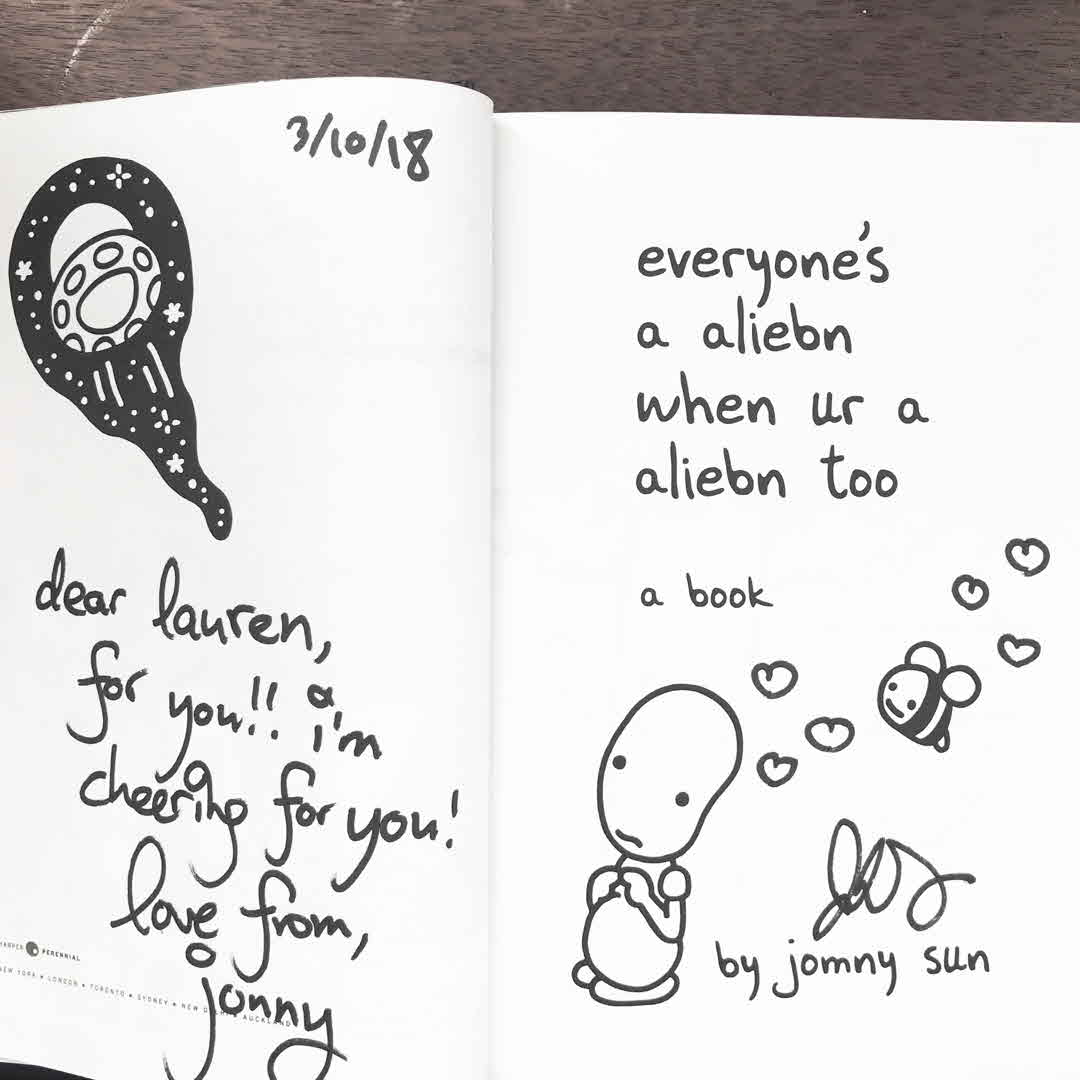 3/10/18
dear lauren,
for you!! & i'm
cheering for you!
love from,
jonny
HARPER PERENNIAL
NEW YORK • LONDON • TORONTO • SYDNEY • NEW DELHI • AUCKLAND
everyone's
a aliebn
when ur a
aliebn too
a book
by jomny sun